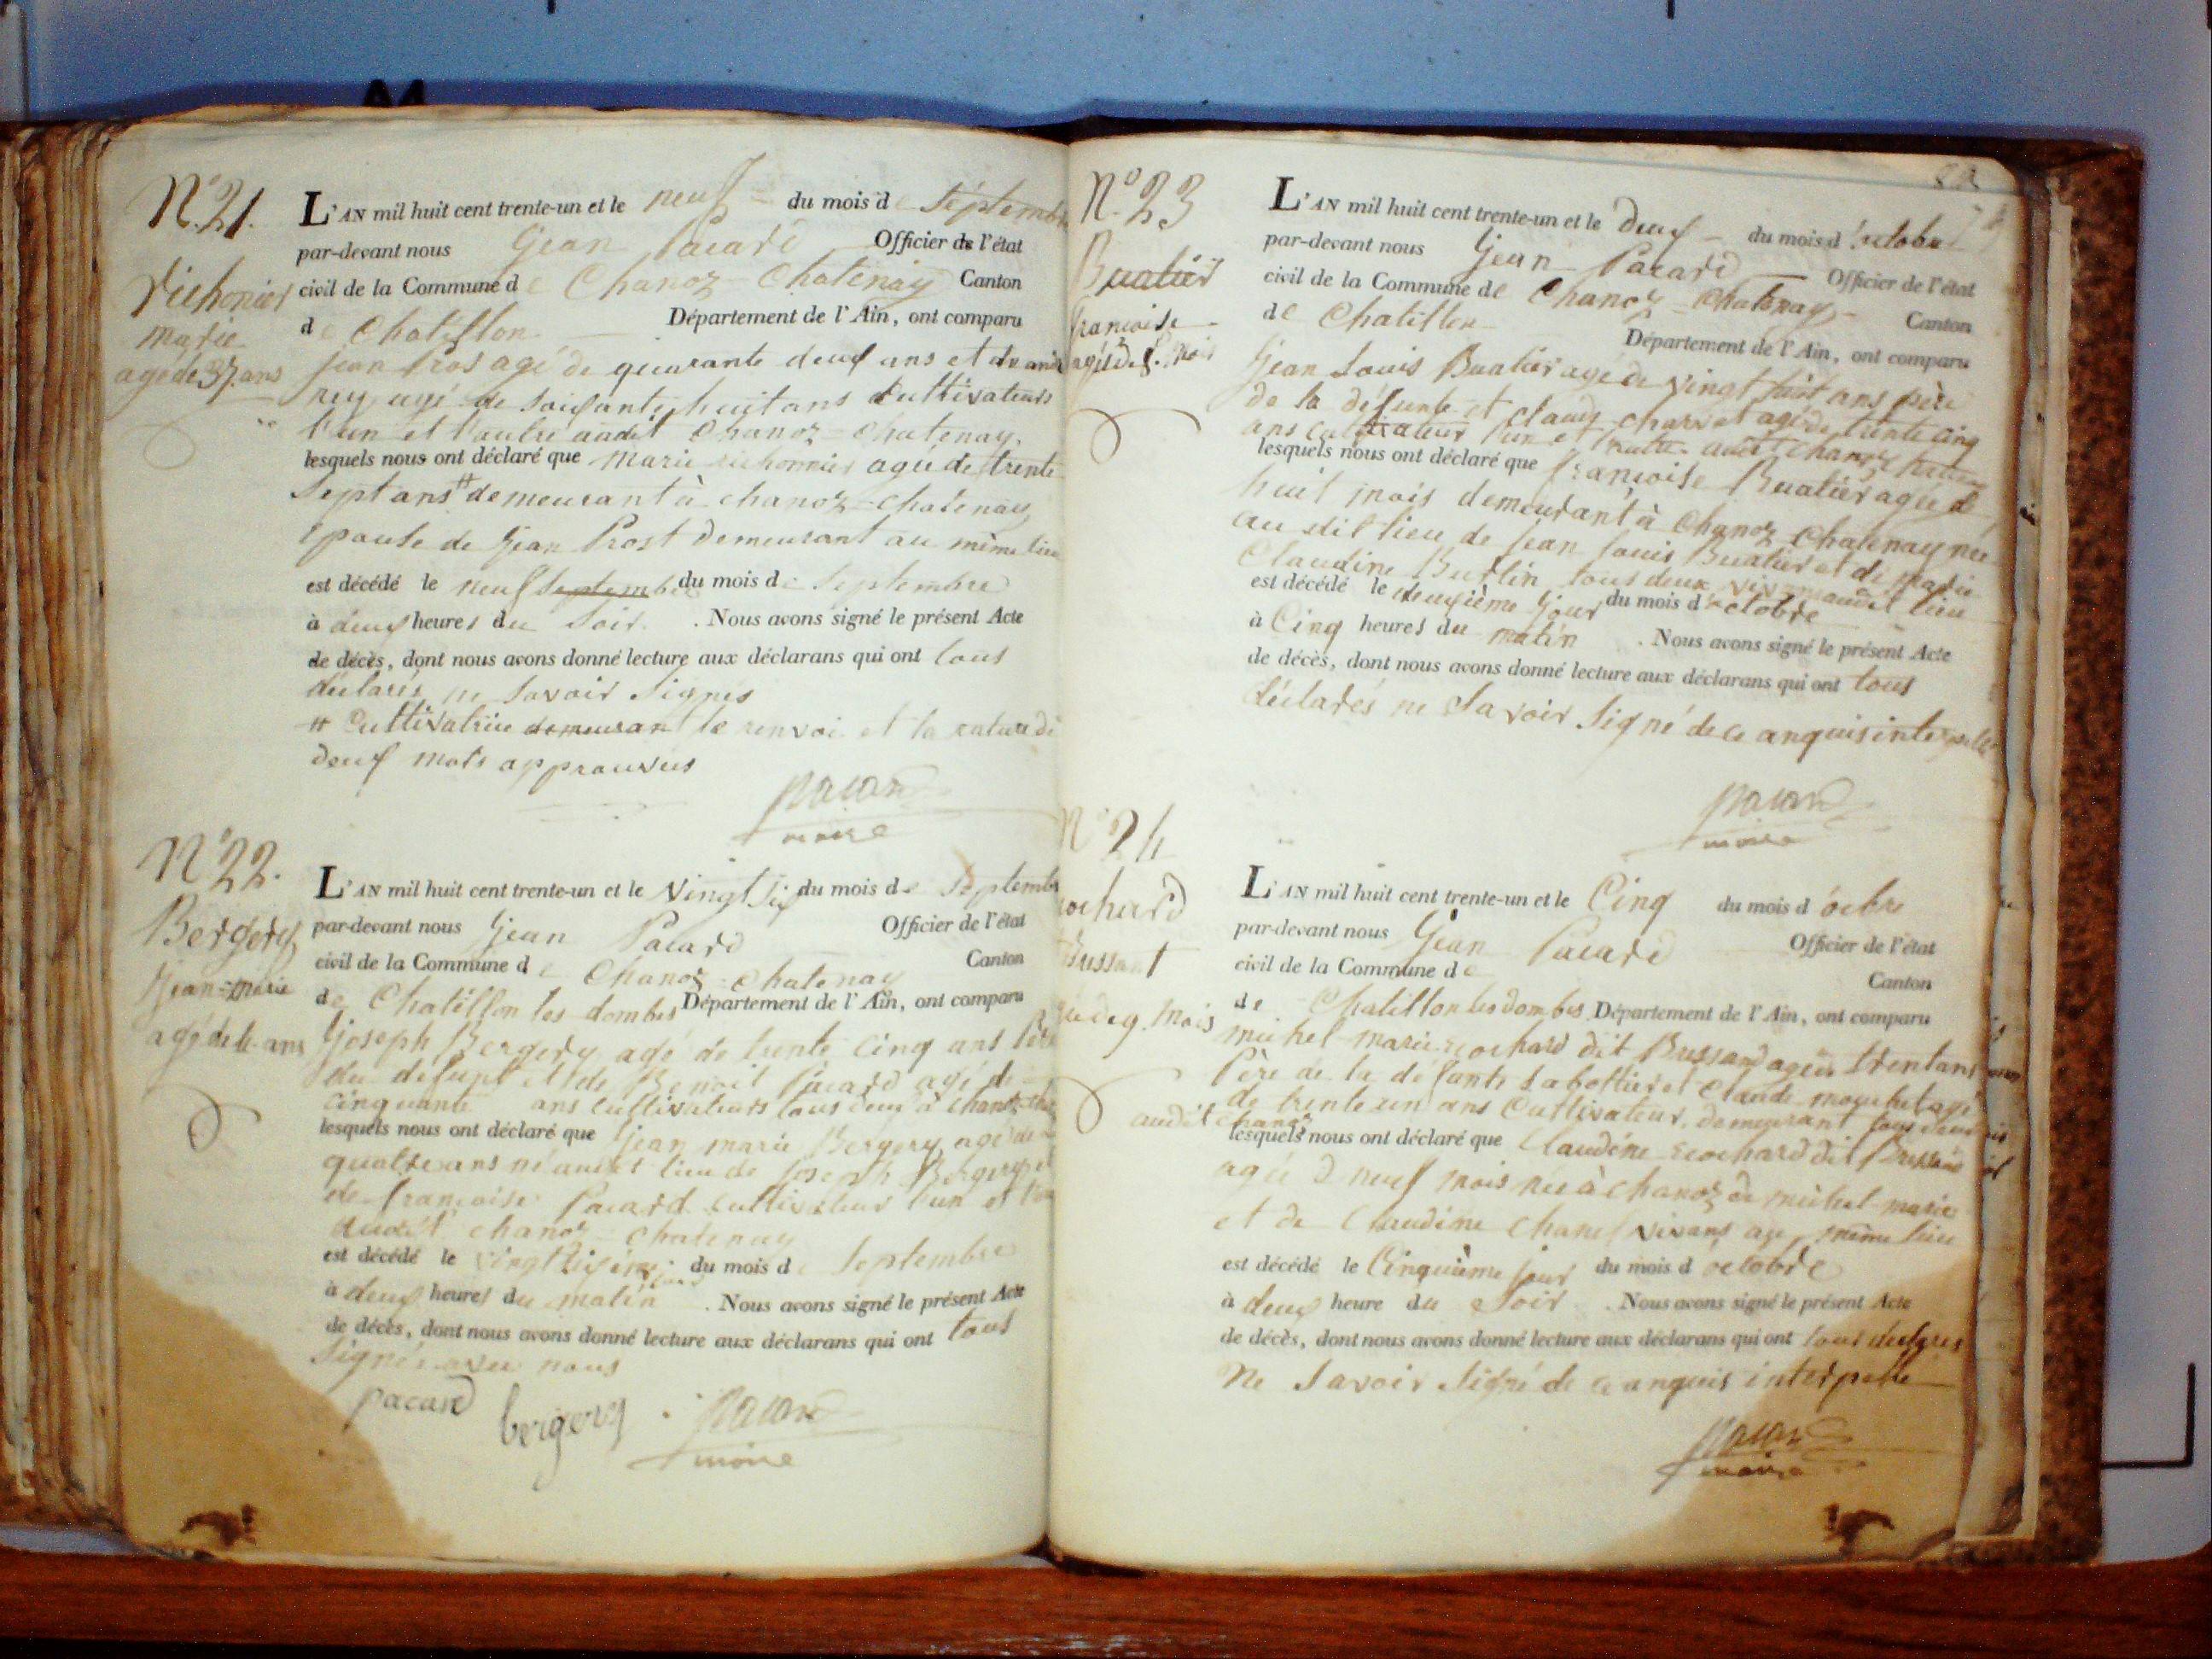 N° 21.
Richonier
marie
agé de 37. ans
L'AN mil huit cent trente-un et le neuf du mois de Septembre
par-devant nous Jean Pacard Officier de l'état
civil de la Commune de Chanoz Chatenay Canton
de Chatillon Département de l'Ain, ont comparu
Jean Pros agé de quarante deux ans et
agé de soixante huit ans Cultivateurs
l'un et l'autre audit Chanoz = Chatenay.
lesquels nous ont déclaré que Marie richonnier agée de trente
Sept ans # demeurant à chanoz = Chatenay
Epouse de Jean Prost demeurant au même lieu
est décédé le neuf Septembre du mois de Septembre
à deux heures du Soir. Nous avons signé le présent Acte
de décès, dont nous avons donné lecture aux déclarans qui ont tous
déclarés ne Savoir Signés
# Cultivatrice demeurant le renvoi et la rature de
deux mots approuvés
Pacard
maire
N° 22.
Bergery
Jean = marie
agé de 4. ans
L'AN mil huit cent trente-un et le Vingt Six du mois de Septembre
par-devant nous Jean Pacard Officier de l'état
civil de la Commune de Chanoz = Chatenay Canton
de Chatillon les dombes Département de l'Ain, ont comparu
Joseph Bergery agé de trente cinq ans Père
du defunt et de Benoit Pacard agé de
cinquante ans cultivateurs tous deux à Chanoz
lesquels nous ont déclaré que Jean marie Bergery agé de
quatre ans né audit lieu de Joseph Bergery et
de françoise Pacard cultivateur l'un et
audit chanoz = Chatenay
est décédé le vingt sixième jour du mois de Septembre
à deux heures du matin. Nous avons signé le présent Acte
de décès, dont nous avons donné lecture aux déclarans qui ont tous
Signés avec nous
pacard bergery Pacard
maire
N° 23
Buatier
françoise
agée de 8. mois
L'AN mil huit cent trente-un et le deux du mois d'octobre
par-devant nous Jean Pacard Officier de l'état
civil de la Commune de Chanoz = Chatenay Canton
de Chatillon Département de l'Ain, ont comparu
Jean Louis Buatier agé de vingt huit ans père
de la défunte et claude charvet agé de trente cinq
ans cultivateur l'un et l'autre audit chanoz
lesquels nous ont déclaré que françoise Buatier agée de
huit mois demeurant à Chanoz Chatenay née
au dit lieu de Jean Louis Buatier et de marie
Claudine Burtin tous deux vivans audit lieu
est décédé le deuxième jour du mois d'octobre
à Cinq heures du matin. Nous avons signé le présent Acte
de décès, dont nous avons donné lecture aux déclarans qui ont tous
déclarés ne Savoir Signé de ce anquis interpellé
Pacard
maire
N° 24
Bussant
9. mois
L'AN mil huit cent trente-un et le Cinq du mois d'octbre
par-devant nous Jean Pacard Officier de l'état
civil de la Commune de Canton
de Chatillon les dombes Département de l'Ain, ont comparu
michel marie rochard dit Bussand agé de trent ans
Père de la défante Sabottier et Claude agé
de trente un ans Cultivateur, demeurant tous deux
audit chanoz
lesquels nous ont déclaré que Claudine rochard dit Bussand
agée d neuf mois née à chanoz de michel marie
et de Claudine Chanel vivans au même lieu
est décédé le Cinquième jour du mois d octobre
à deux heure du Soir. Nous avons signé le présent Acte
de décès, dont nous avons donné lecture aux déclarans qui ont tous declarés
Ne Savoir Signé de ce anquis interpellé
Pacard
maire